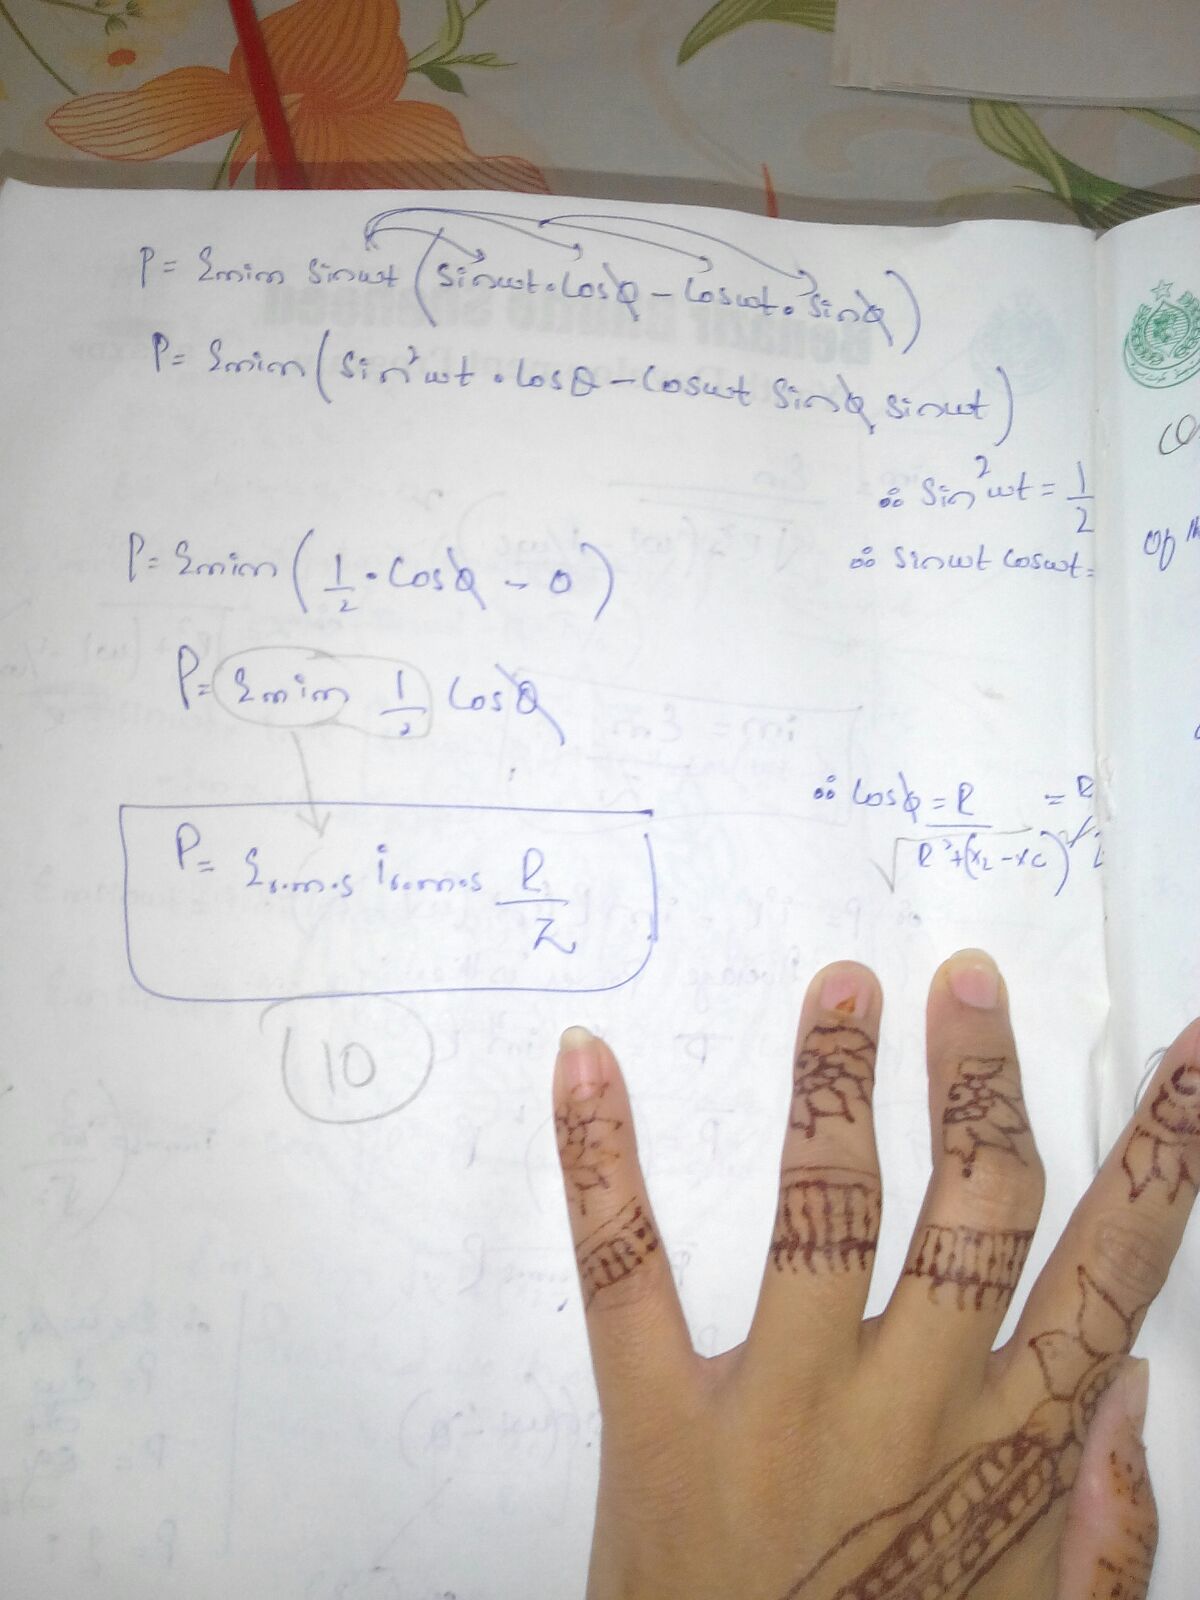 P = Ɛm im Sinωt (Sinωt · Cosϕ – Cosωt · Sinϕ)
P = Ɛm im (Sin²ωt · Cosθ – Cosωt Sinϕ Sinωt)
∴ Sin²ωt = 1/2
∴ Sinωt Cosωt =
P = Ɛm im (1/2 · Cosϕ – 0)
P = Ɛm im 1/2 Cosϕ
∴ Cosϕ = R/√R²+(XL–XC)² = R/Z
P = Ɛr.m.s ir.m.s R/Z
10
of